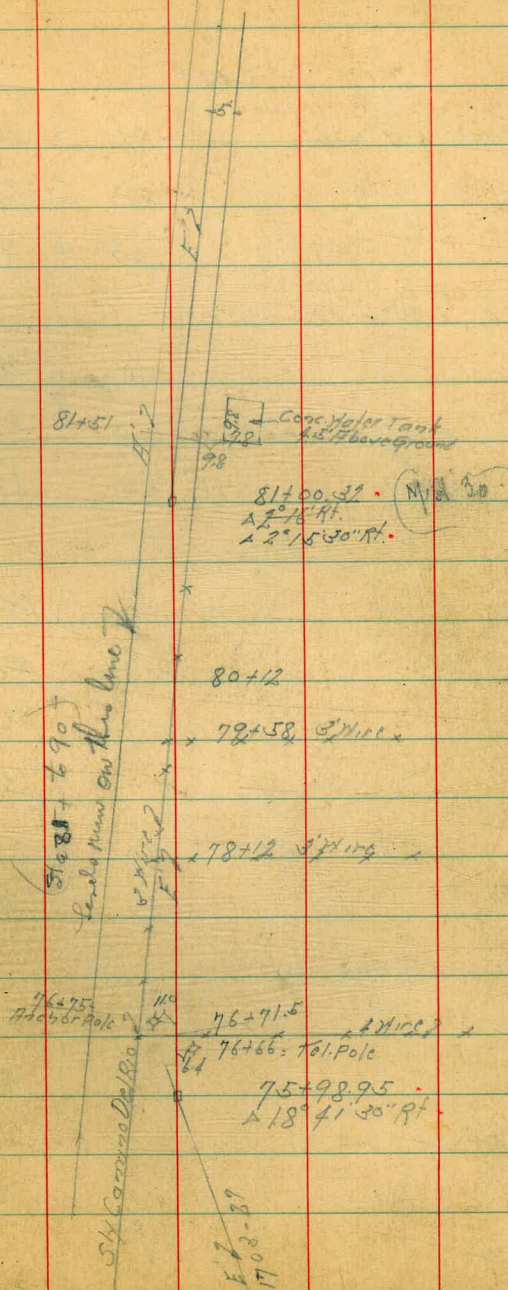 81+51
9.8
7.8
9.8
Conc. Water Tank
4.5 Above Ground
81+00.32
Δ 2°16' Rt.
Δ 2°15'30" Rt.
80+12
79+58 3' Wire
78+12 3' Wire
on this line
3 Wire
76+75
Anchor Pole
11.0
76+71.5
4 Wire
76+66 = Tel. Pole
6.4
75+98.95
Δ 18°41'30" Rt
Sly Camino Del Rio
1703-37